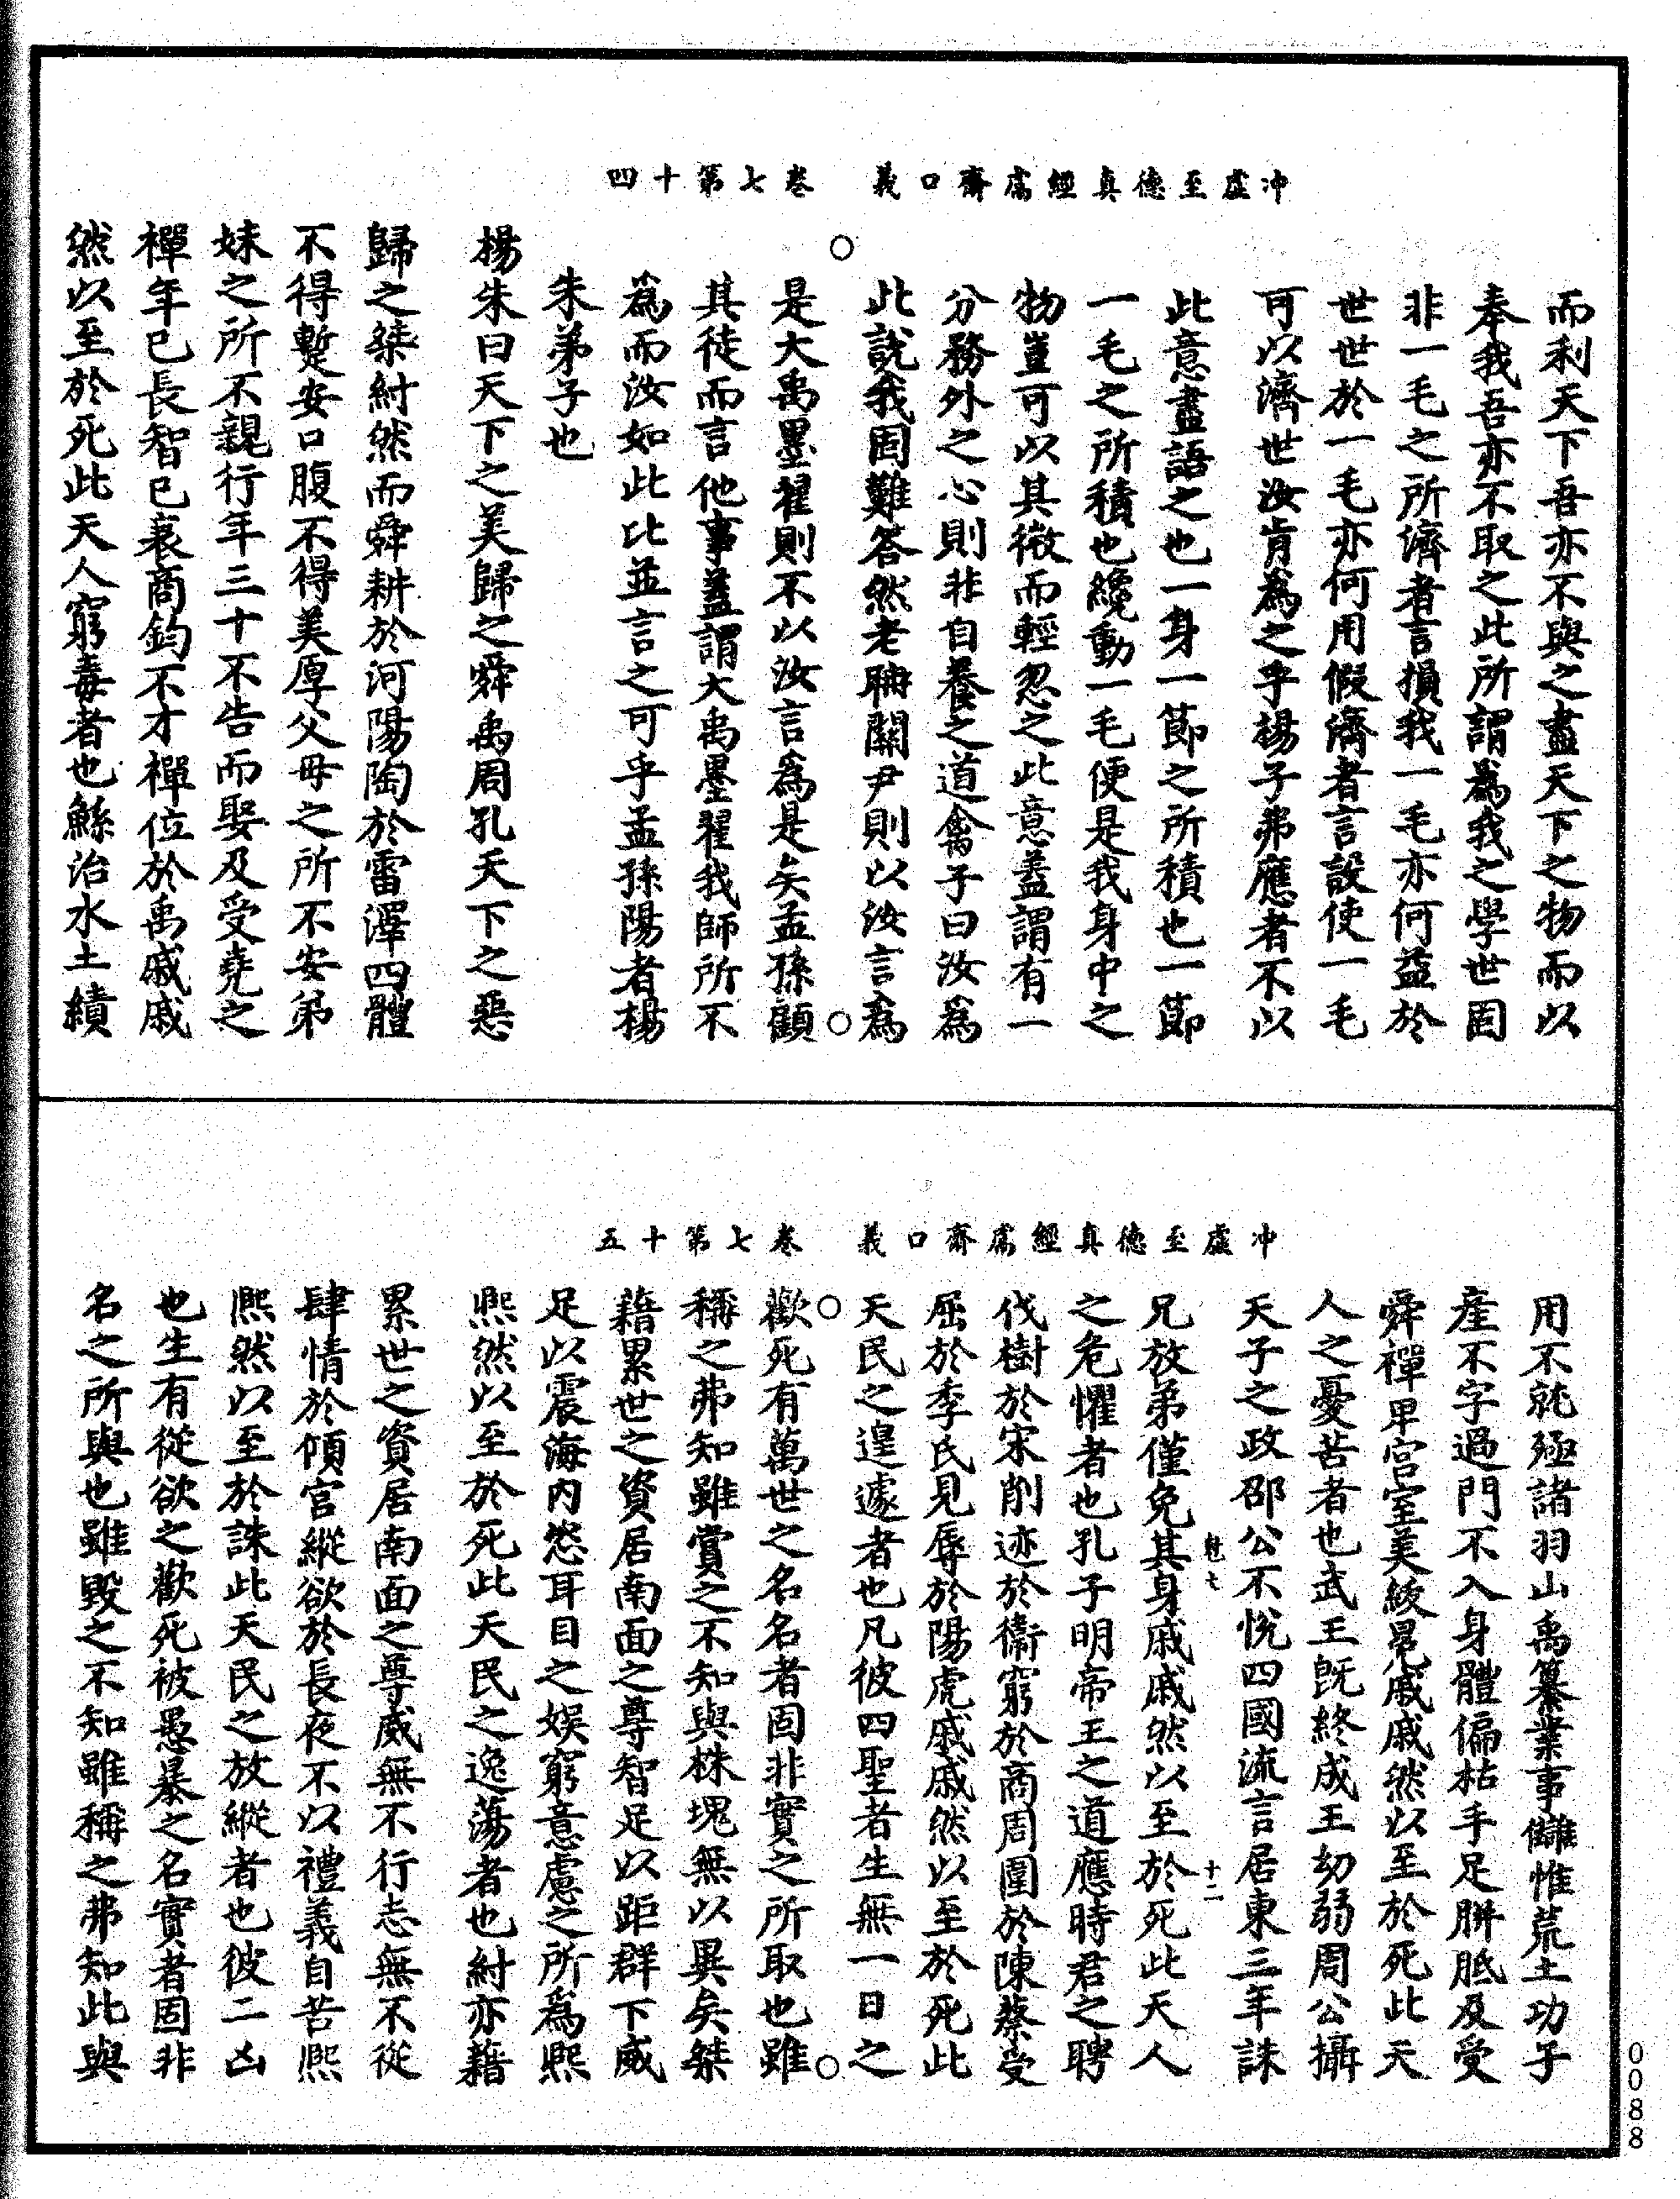 冲虛至德真經鬳齋口義　卷七第十四
而利天下吾亦不與之盡天下之物而以
奉我吾亦不取之此所謂為我之學世固
非一毛之所濟者言損我一毛亦何益於
世世於一毛亦何用假濟者言設使一毛
可以濟世汝肯為之乎楊子弗應者不以
此意盡語之也一身一節之所積也一節
一毛之所積也纔動一毛便是我身中之
物豈可以其微而輕忽之此意蓋謂有一
分務外之心則非自養之道禽子曰汝為
此說我固難答然老聃關尹則以汝言為
是大禹墨翟則不以汝言為是矣孟孫顧
其徒而言他事蓋謂大禹墨翟我師所不
為而汝如此比並言之可乎孟孫陽者楊
朱弟子也
楊朱曰天下之美歸之舜禹周孔天下之惡
歸之桀紂然而舜耕於河陽陶於雷澤四體
不得暫安口腹不得美厚父母之所不安弟
妹之所不親行年三十不告而娶及受堯之
禪年已長智已衰商鈞不才禪位於禹戚戚
然以至於死此天人窮毒者也鯀治水土績
冲虛至德真經鬳齋口義　卷七第十五
用不就殛諸羽山禹纂業事讎惟荒土功子
產不字過門不入身體偏枯手足胼胝及受
舜禪卑宮室美紱冕戚戚然以至於死此天
人之憂苦者也武王既終成王幼弱周公攝
天子之政邵公不悅四國流言居東三年誅
兄放弟僅免其身戚戚然以至於死此天人
之危懼者也孔子明帝王之道應時君之聘
伐樹於宋削迹於衞窮於商周圍於陳蔡受
屈於季氏見辱於陽虎戚戚然以至於死此
天民之遑遽者也凡彼四聖者生無一日之
歡死有萬世之名名者固非實之所取也雖
稱之弗知雖賞之不知與株塊無以異矣桀
藉累世之資居南面之尊智足以距群下威
足以震海內恣耳目之娛窮意慮之所為熙
熙然以至於死此天民之逸蕩者也紂亦藉
累世之資居南面之尊威無不行志無不從
肆情於傾宮縱欲於長夜不以禮義自苦熙
熙然以至於誅此天民之放縱者也彼二凶
也生有從欲之歡死被愚暴之名實者固非
名之所與也雖毀之不知雖稱之弗知此與
十二
0088